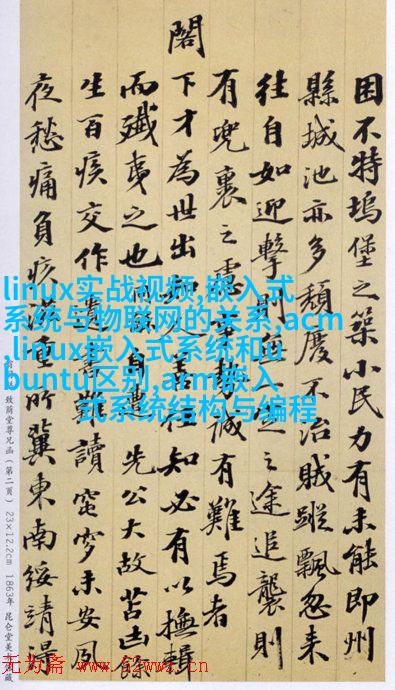 困不特塢堡之築小民力有未能即州
縣城池亦多頹廢不治賊蹤飄忽来
往自如迎擊則之途追襲則
有兜裹之慮勢誠有難焉者
閣
下才為世出善知必有以撫輯
而殲夷之也自先公大故苦凷餘
生百疾交作難讀窀穸未安夙
夜愁痛負疚深重所冀東南綏靖得
linux实战视频,嵌入式
系统与物联网的关系,acm
,linux嵌入式系统和u
buntu区别,arm嵌入
式系统结构与编程
尊兄函(第二頁) 23×12.2cm 1863年 昆仑堂美术馆藏
无为斋 www.52wwz.cn